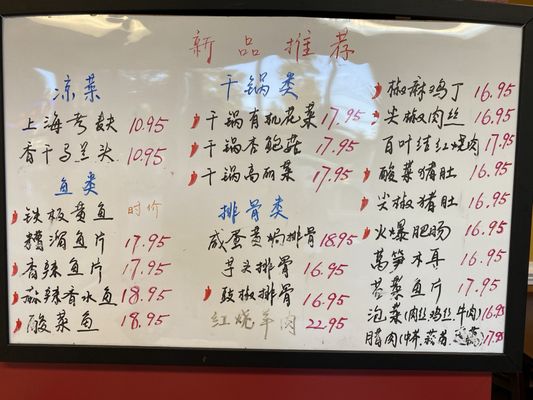 新品推荐
凉菜
上海烤麸 10.95
香干马兰头 10.95
鱼类
铁板黄鱼 时价
糟溜鱼片 17.95
香辣鱼片 17.95
麻辣香水鱼 18.95
酸菜鱼 18.95
干锅类
干锅有机花菜 17.95
干锅杏鲍菇 17.95
干锅高丽菜 17.95
排骨类
咸蛋黄焗排骨 18.95
芋头排骨 16.95
豉椒排骨 16.95
红烧羊肉 22.95
椒麻鸡丁 16.95
尖椒肉丝 16.95
百叶结红烧肉 17.95
酸菜猪肚 16.95
尖椒猪肚 16.95
火爆肥肠 16.95
莴笋木耳 16.95
芥菜鱼片 17.95
泡菜(肉丝.鸡丝.牛肉) 16.95
腊肉( 17.95